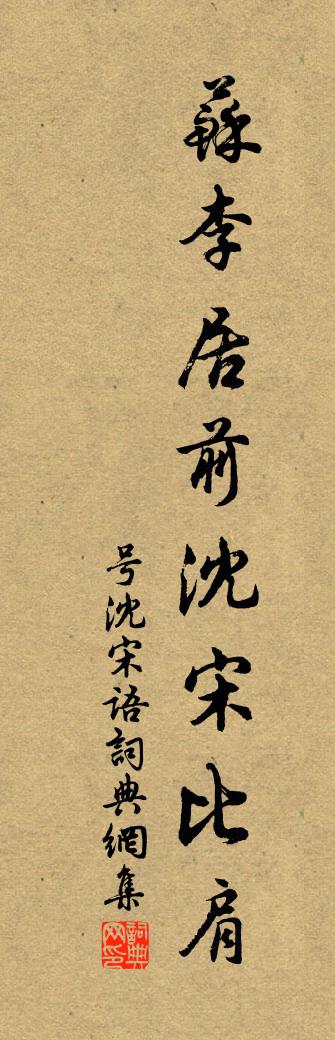 蘇李居前沈宋比肩
号沈宋語詞典網集
詞典网印